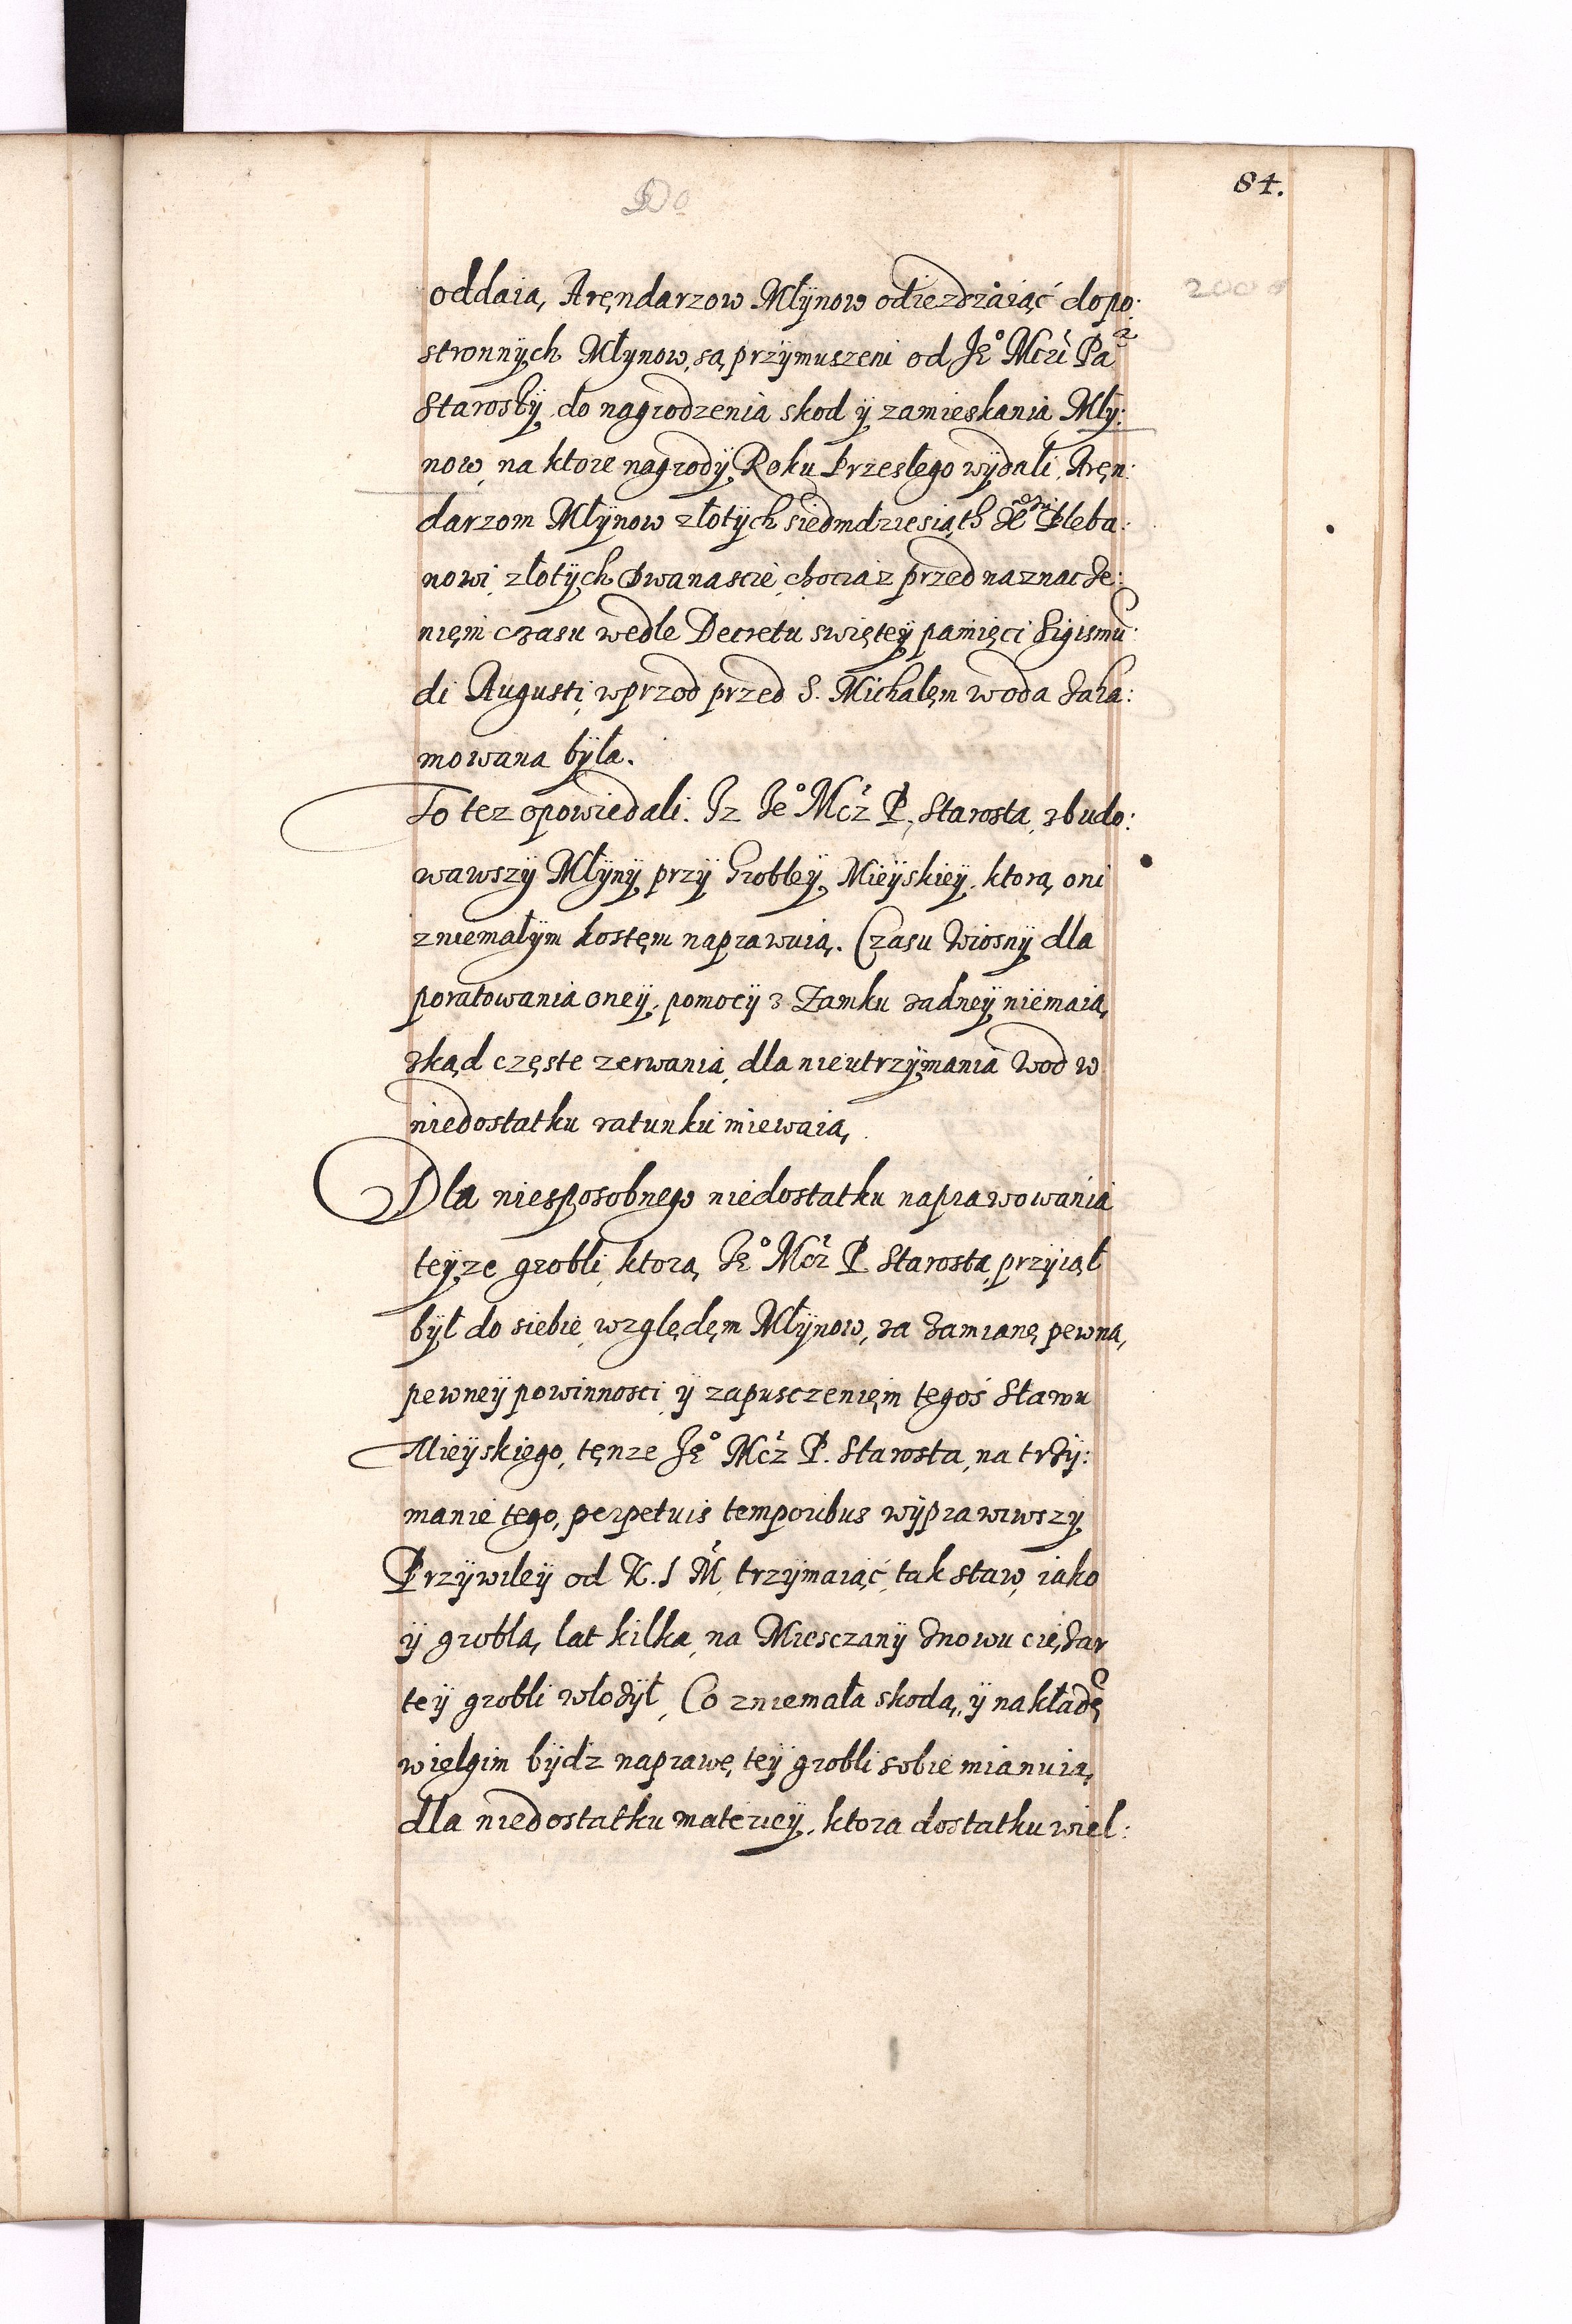 84.
Do
2000
oddaią, Aręndarzow Młÿnow odiezdzaiąć do po:
stronnÿch Młynow, są przÿmuszeni od Je° Mczi Pa
Starostÿ do nagrodzenia skod ÿ zamieskania Mły:
now, na ktore nagrodÿ Roku Przesłego wÿdali Aręn:
darzom Młÿnow złotÿch siedmdziesiąth Pleba:
nowi, złotÿch Dwanascie, chociaz przed naznacze:
nięm czasu wedle Decretu swięteÿ pamięci Sigismu:
di Augusti, wprzod przed S. Michałęm woda zaha:
mowana bÿła.
To tez opowiedali. Iz Je° Mcz P. Starosta, zbudo:
wawszÿ Młÿnÿ przÿ Grobleÿ Mieÿskieÿ, ktorą oni
z niemałÿm kostęm naprawuią. Czasu Wiosnÿ dla
poratowania oneÿ, pomocÿ z Zamku zadneÿ niemaią,
zkąd częste zerwania, dla nieutrzÿmania Wod w
niedostatku ratunku miewaią,
Dla niesposobnego niedostatku naprawowania
teÿze grobli, ktorą Je° Mcz P Starosta, przÿiął
bÿł do siebie, względęm Młÿnow, za zamianę pewną,
pewneÿ powinnosci ÿ zapusczenięm tegoś Stawu
Mieÿskiego, tęnze Je° Mcz P. Starosta, na trzÿ:
manie tego, perpetuis temporibus wÿprawiwszÿ
Przÿwileÿ od K. J M, trzÿmaiąć, tak staw, iako
ÿ groblą, lat kilka, na Miesczanÿ znowu ciężar
teÿ grobli włozÿł, Co z niemałą skodą, ÿ nakładę
wielgim bÿdz naprawę, teÿ grobli sobie mianuią,
dla niedostatku materieÿ, ktora dostatku wiel: